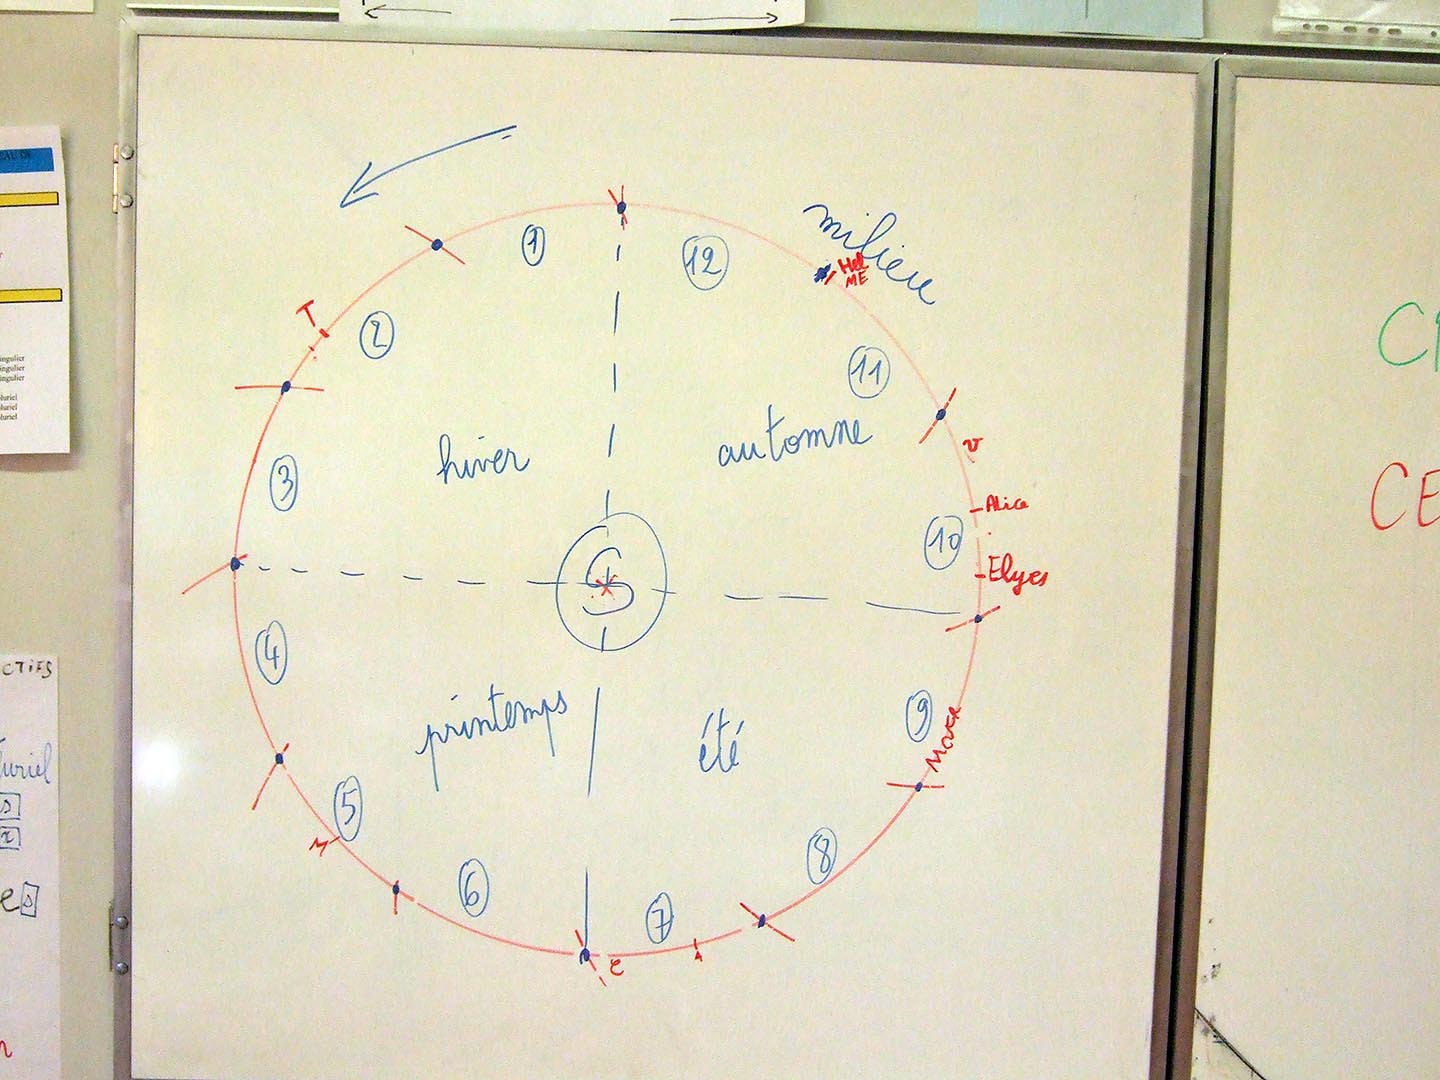 milieu
1
12
Hel
ME
T
2
11
hiver
automne
v
3
Alice
10
Elyes
S
4
printemps
été
9
5
M
8
6
7
e
A
EAU DE
ingulier
ingulier
ingulier
luriel
luriel
luriel
CTIFS
luriel
s
x
e s
C
CE